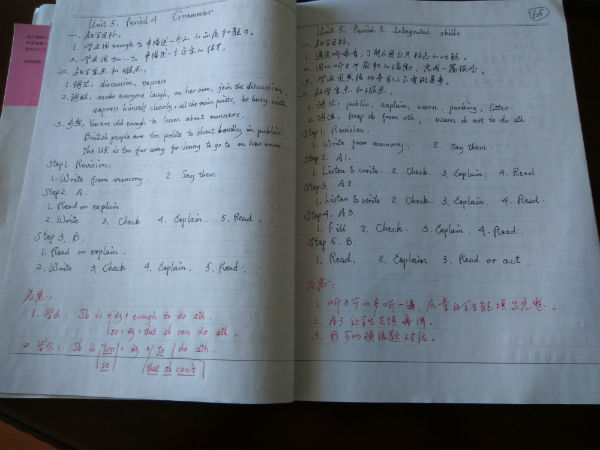 Unit 5. Period 4 Grammar
一、教学目标。
1. 学会用 enough to 来描述一个人的品质和能力。
2. 学会用 too… to…
二、教学重点和难点。
1. 词汇, discussion, express
2. 词组, make everyone laugh, on her own, join the discussion,
express himself clearly, all the main points, be busy with
3. 句型, You are old enough to learn about manners.
British people are too polite to shout loudly in public.
The UK is too far away for Jenny to go to on her own.
Step 1. Revision.
1. Write from memory. 2. Say them.
Step 2. A
1. Read or explain.
2. Write 3. Check 4. Explain 5. Read.
Step 3. B.
1. Read or explain.
2. Write 3. Check 4. Explain 5. Read.
反思:
1. Sb is adj + enough to do sth.
so + adj + that sb can do sth.
2. Sb is too + adj to do sth.
so that sb can't
65
Unit 5. Period 5 Integrated skills
一、教学目标。
二、教学重点和难点。
1. 词汇: public, explain, warn, parking, litter
2. 词组, keep sb from sth, warn sb not to do sth
Step 1 Revision.
1. Write from memory. 2. Say them
Step 2. A1.
1. Listen & write 2. Check 3. Explain. 4. Read
Step 3. A2
1. Listen & write 2. Check 3. Explain. 4. Read.
Step 4. A3
1. Fill 2. Check. 3. Explain. 4. Read.
Step 5. B.
1. Read. 2. Explain 3. Read or act.
反思:
1. 听力可以多听一遍,尽量让学生能填写完整。
2. A3 让学生先填再讲。
3. B可以